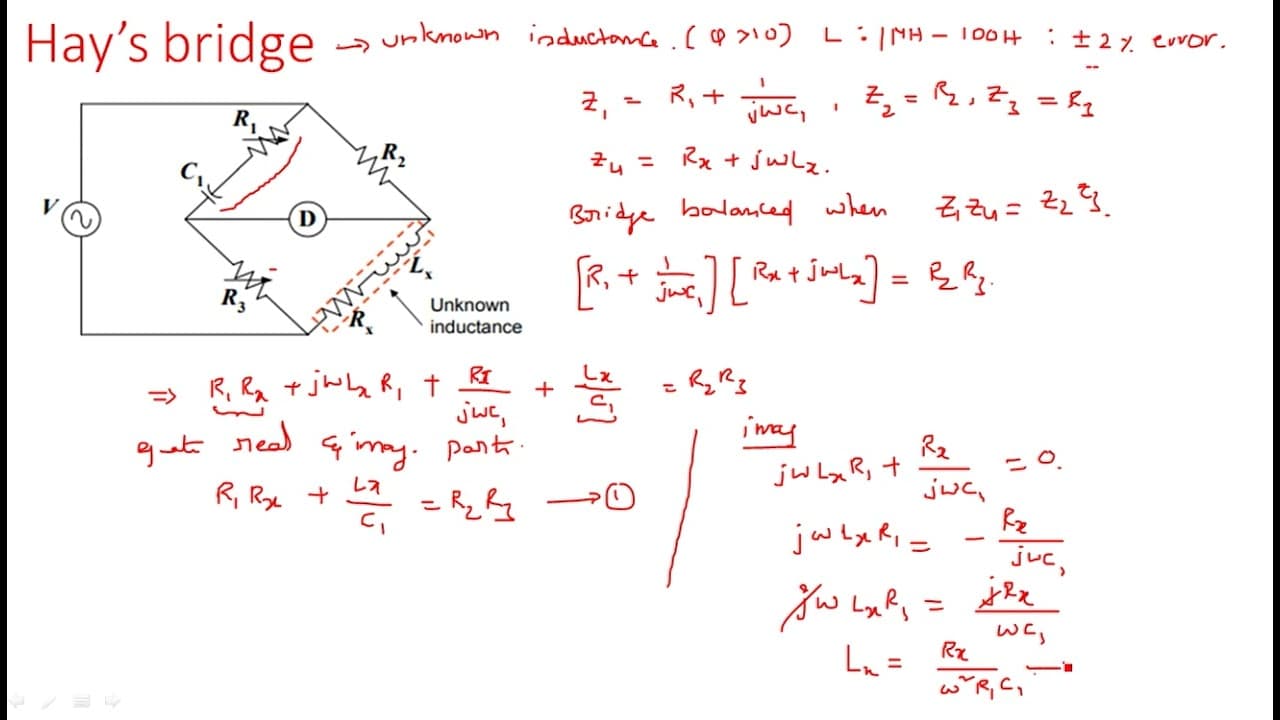 Hay's bridge → unknown inductance. (Q >10) L : 1MH - 100H : ± 2 % error.
Z₁ = R₁ + 1/jωC₁ , Z₂ = R₂, Z₃ = R₃
Z₄ = Rx + jωLx.
Bridge balanced when Z₁Z₄ = Z₂Z₃.
[R₁ + 1/jωC₁] [Rx + jωLx] = R₂ R₃.
R₁
R₂
C₁
V
D
Lx
R₃
Rx
Unknown
inductance
⇒ R₁ Rx + jωLx R₁ + Rx/jωC₁ + Lx/C₁ = R₂R₃
real & imag. part.
R₁ Rx + Lx/C₁ = R₂ R₃ → ①
imag
jωLxR₁ + Rx/jωC₁ = 0.
jωLxR₁ = - Rx/jωC₁
jωLxR₁ = jRx/ωC₁
Lx = Rx/ω²R₁C₁ —